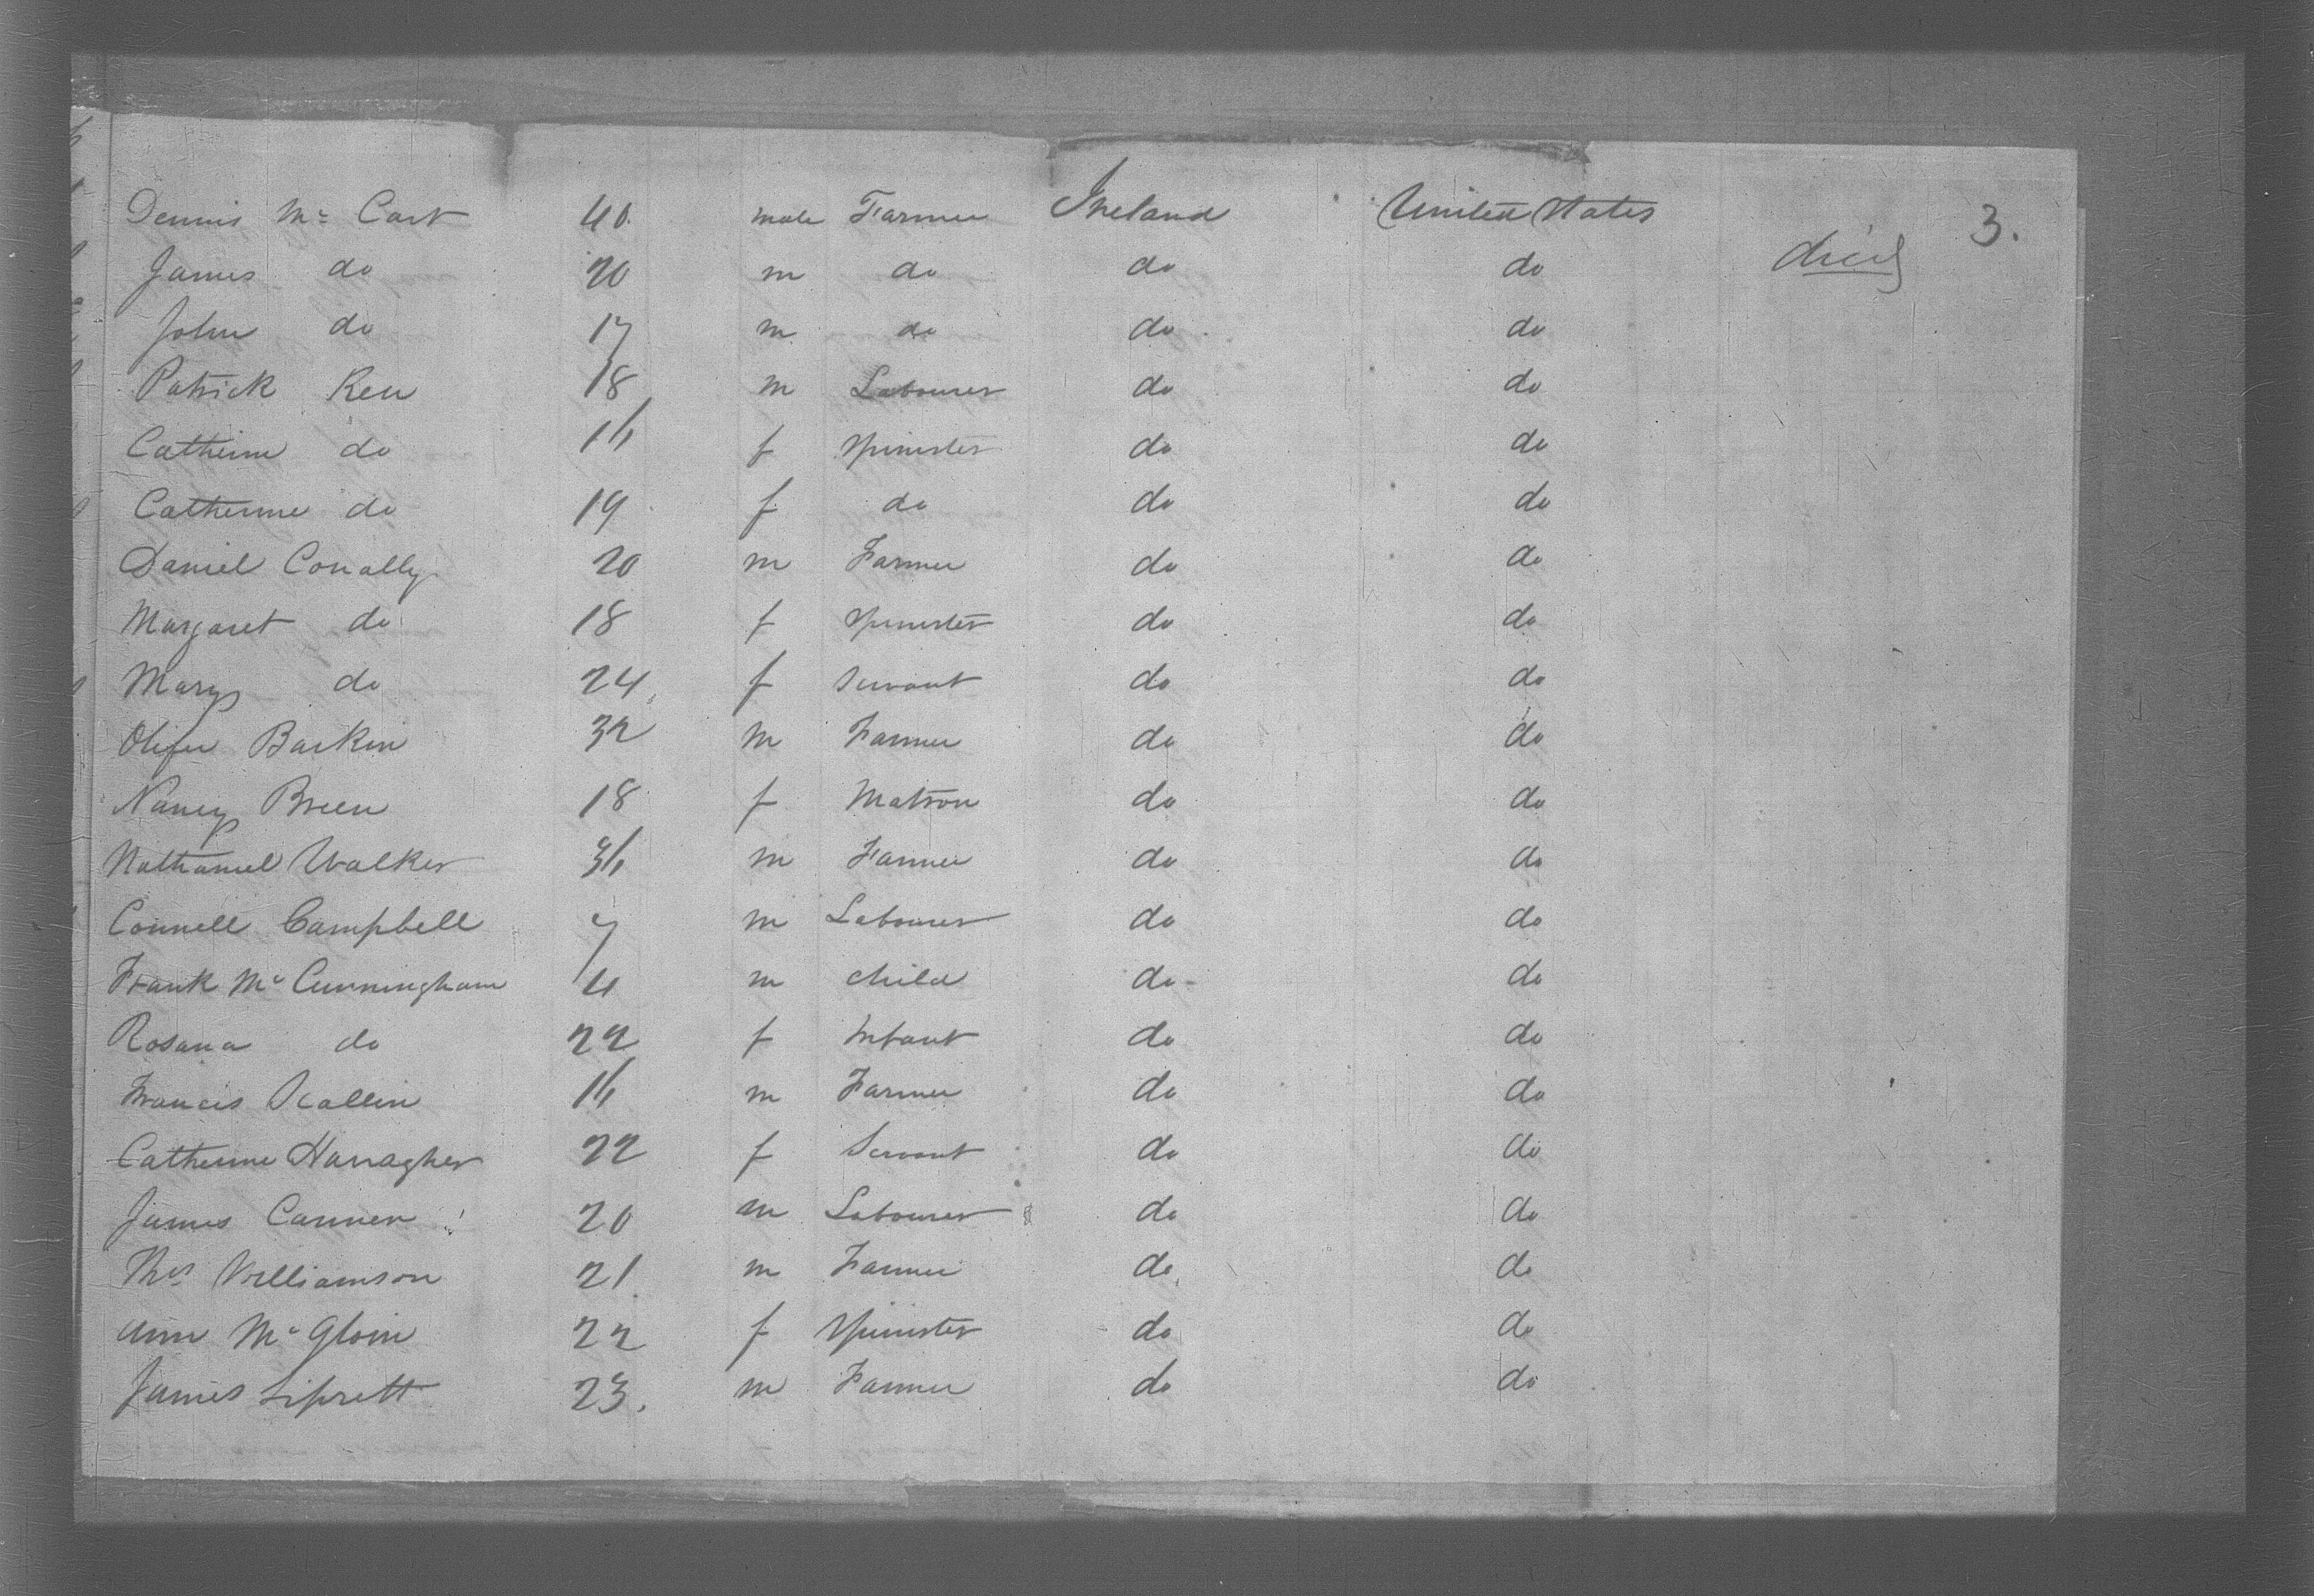 3.
Dennis Mc Cart 40 male Farmer Ireland United States
James do 20 m do do do died
John do 17 m do do do
Patrick Keu 18 m Labourer do do
Catherine do 16 f Spinster do do
Catherine do 19 f do do do
Daniel Conally 20 m Farmer do do
Margaret do 18 f Spinster do do
Mary do 24 f Servant do do
Olifer Barkin 32 m Farmer do do
Nancy Breen 18 f Matron do do
Nathaniel Walker 36 m Farmer do do
Connell Campbell 7 m Labourer do do
Frank Mc Cunningham 4 m child do do
Rosana do 22 f Infant do do
Francis Scallin 16 m Farmer do do
Catherine Harragher 22 f Servant do do
James Canner 20 m Labourer do do
Thos Williamson 21 m Farmer do do
Ann Mc Gloin 22 f Spinster do do
James Liprett 23. m Farmer do do